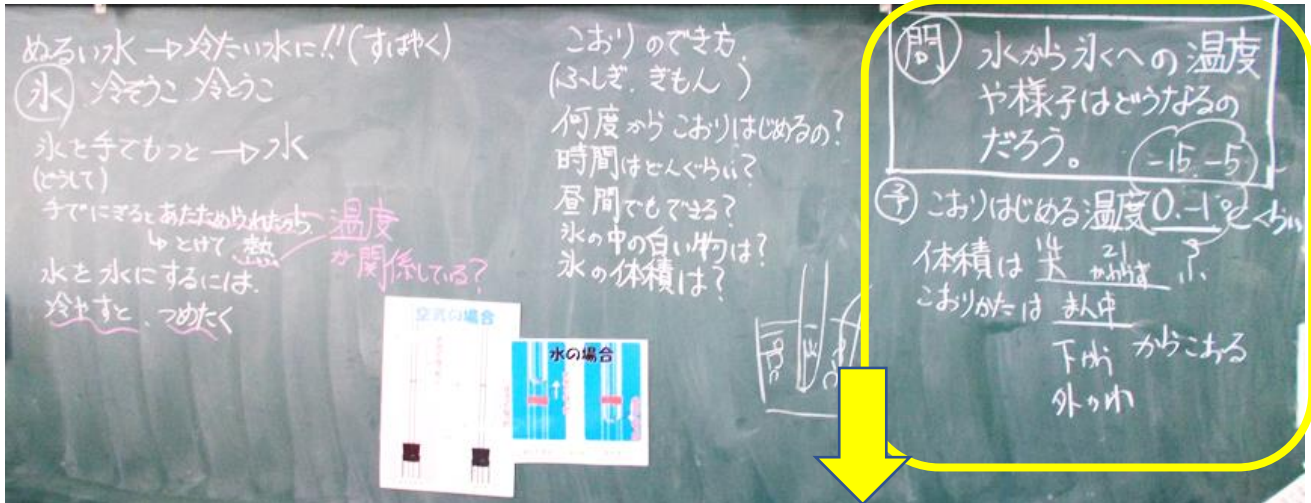 ぬるい水→冷たい水に!!(すばやく)
氷 冷ぞうこ 冷とうこ
氷を手でもつと→水
(どうして)
手でにぎるとあたためられたから
とけて 熱
温度
が関係している?
水を氷にするには、
冷やすと、つめたく
空気の場合
水の場合
こおりのでき方
(ふしぎ、ぎもん )
何度からこおりはじめるの?
時間はどんぐらい?
昼間でもできる?
氷の中の白い物は?
氷の体積は?
問 水から氷への温度
や様子はどうなるの
だろう。
-15. -5
予 こおりはじめる温度 0. -1℃くらい
体積は
こおりかたは まん中
からこおる